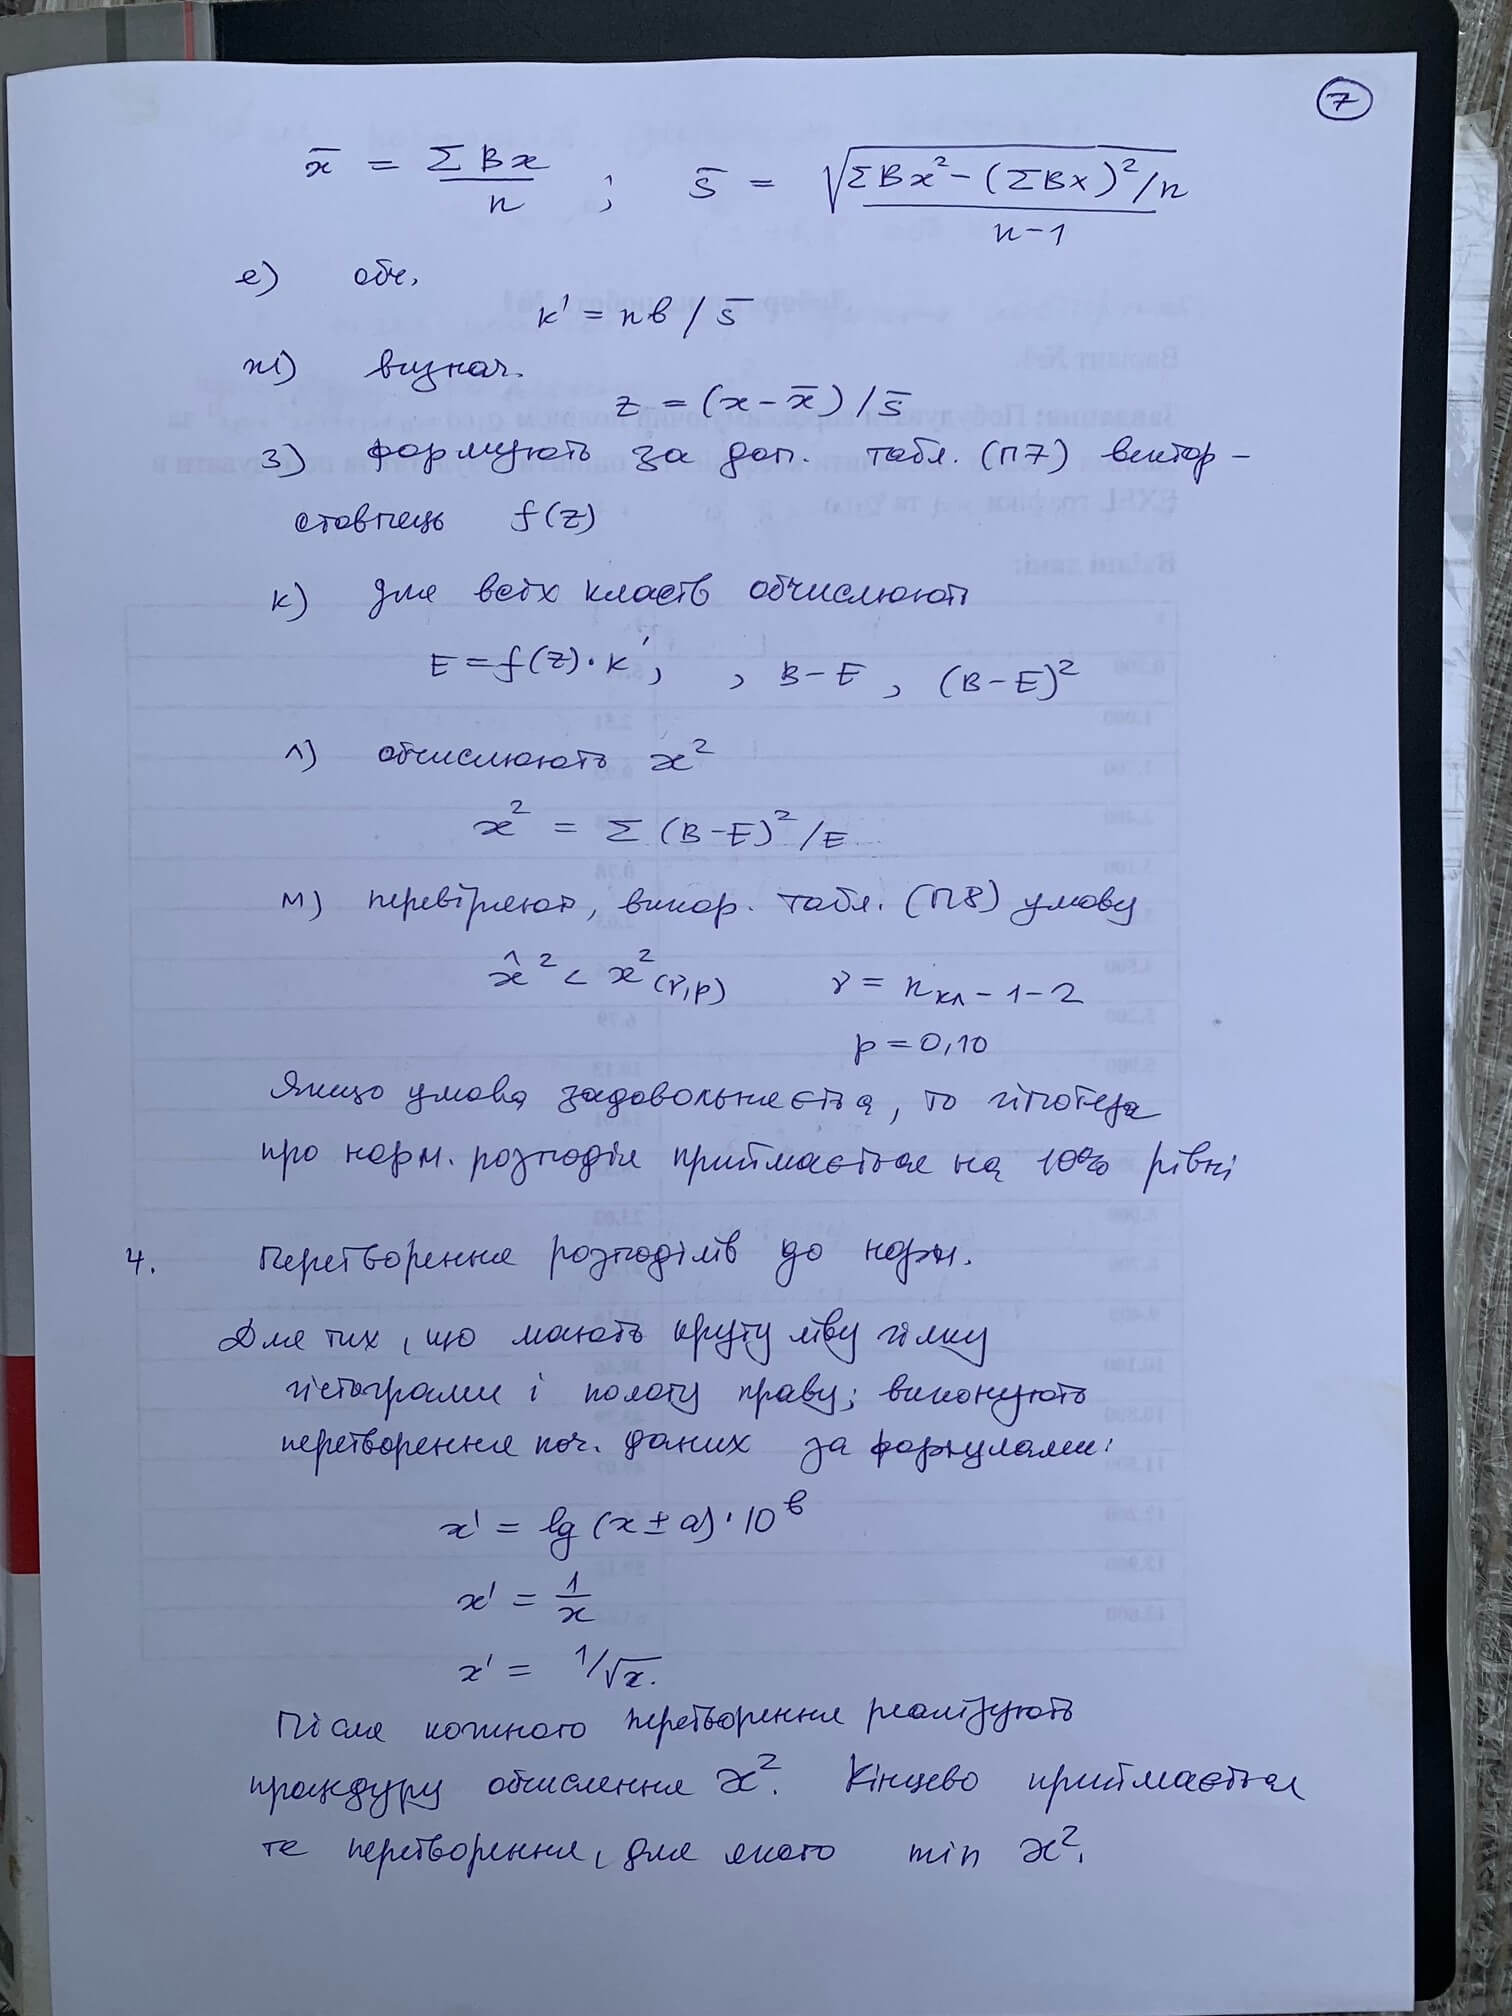 7
x̄ = ΣBx / n ; s̄ = √(ΣBx² – (ΣBx)²/n) / n–1
е) обч.
k' = nв / s̄
ж) визнач.
z = (x – x̄) / s̄
з) формують за доп. табл. (П7) вектор–
стовпець f(z)
к) для всіх класів обчислюють
E = f(z)·k', , B–E, (B–E)²
л) обчислюють x²
x² = Σ (B–E)²/E
м) перевіряють, викор. табл. (П8) умову
x̂² < x²(γ,p) γ = nкл – 1 – 2
p = 0,10
Якщо умова задовольняється, то гіпотеза
про норм. розподіл приймається на 10% рівні
4. Перетворення розподілів до норм.
Для тих, що мають круту ліву гілку
гістограми і пологу праву; виконують
перетворення поч. даних за формулами:
x' = lg (x ± a)·10ᵇ
x' = 1/x
x' = 1/√x.
Після кожного перетворення реалізують
процедуру обчислення x². Кінцево приймається
те перетворення, для якого min x².